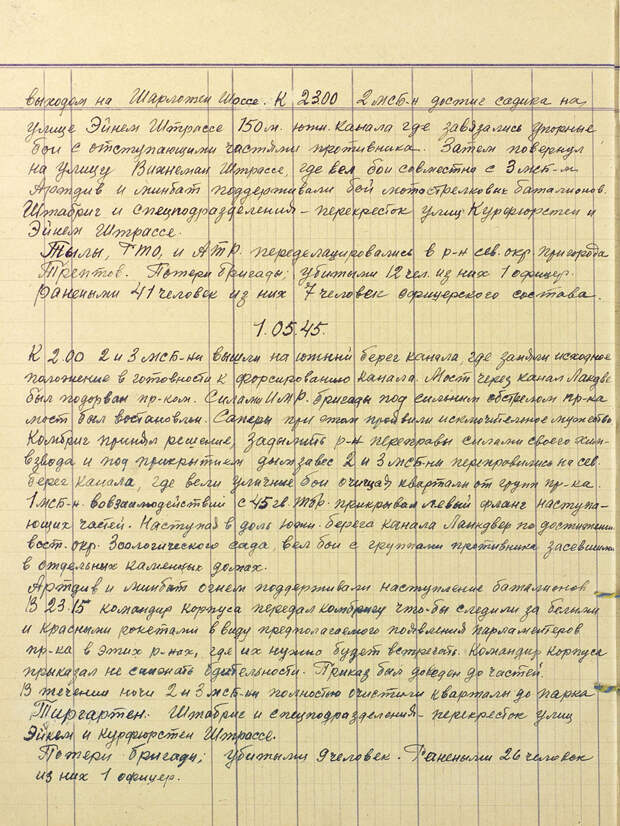 выходом на Шарлотен Шоссе. К 23.00 2 мсб-н достиг садика на
улице Эйнем Штрассе 150 м. южн. канала где завязались упорные
бои с отступающими частями противника. Затем повернул
на улицу Штрассе, где вел бои совместно с 3 мсб-м
Артдив и минбат поддерживали бой мотострелковые баталионов.
Штабриг и спецподразделения – перекресток улиц Курфюрстен и
Эйнем Штрассе.
Тылы, РТО, и АТР. переделацировались в р-н сев. окр. пригорода
Трептов. Потери бригады: убитыми 12 чел. из них 1 офицер.
Ранеными 41 человек из них 7 человек офицерского состава.
1.05.45.
К 2.00 2 и 3 мсб-ни вышли на южный берег канала, где заняли исходное
положение в готовности к форсированию канала. Мост через канал Ландве
был подорван пр-ком. Силами ИМР. бригады под сильным обстрелом пр-ка
мост был востановлен. Саперы при этом проявили исключительное мужество
Комбриг принял решение, Задымить р-н переправы силами своего хим-
взвода и под прикрытием дымзавес 2 и 3 мсб-ни переправились на сев.
берег канала, где вели уличные бои очищая кварталы от групп пр-ка.
1 мсб-н. вовзаимодействий с 45 гв. тбр. прикрывал левый фланг наступа-
ющих частей. Наступая в доль южн. берега канала Ландвер по достижении
вост. окр. Зоологического сада, вел бои с группами противника засевшими
в отдельных каменных домах.
Артдив и минбат огнем поддерживали наступление баталионов
В 23.15 командир корпуса передал комбригу что-бы следили за белыми
и красными ракетами в виду предполагаемого появления парламентеров
пр-ка в этих р-нах, где их нужно будет встречать. Командир корпуса
приказал не снижать бдительности. Приказ был доведен до частей.
В течении ночи 2 и 3 мсб-ни полностью очистили кварталы до парка
Тиргартен. Штабриг и спецподразделения – перекресток улиц
Эйнем и Курфюрстен Штрассе.
Потери бригады; убитыми 9 человек. Ранеными 26 человек
из них 1 офицер.